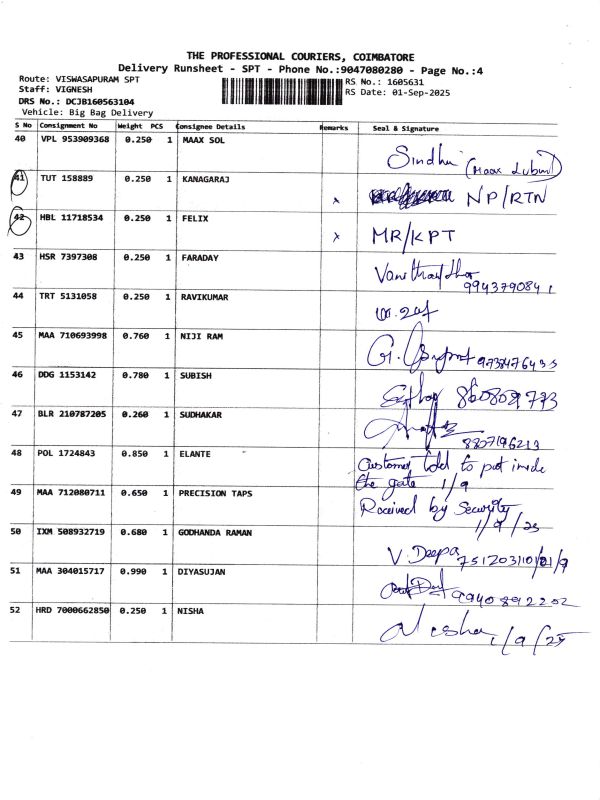 THE PROFESSIONAL COURIERS, COIMBATORE
Delivery Runsheet - SPT - Phone No.:9047080280 - Page No.:4
Route: VISWASAPURAM SPT
RS No.: 1605631
Staff: VIGNESH
RS Date: 01-Sep-2025
DRS No.: DCJB160563104
Vehicle: Big Bag Delivery
S No Consignment No Weight PCS Consignee Details Remarks Seal & Signature
40 VPL 953909368 0.250 1 MAAX SOL Sindhu
41 TUT 158889 0.250 1 KANAGARAJ x NP/RTN
42 HBL 11718534 0.250 1 FELIX x MR/KPT
43 HSR 7397308 0.250 1 FARADAY
9943790841
44 TRT 5131058 0.250 1 RAVIKUMAR
45 MAA 710693998 0.760 1 NIJI RAM
46 DDG 1153142 0.780 1 SUBISH
47 BLR 210787205 0.260 1 SUDHAKAR
8807196213
48 POL 1724843 0.850 1 ELANTE Customer told to put inside
the gate 1/9
49 MAA 712080711 0.650 1 PRECISION TAPS Received by Security
1/9/25
50 IXM 508932719 0.680 1 GODHANDA RAMAN V. Deepa
51 MAA 304015717 0.990 1 DIYASUJAN 9940892202
52 HRD 7000662850 0.250 1 NISHA Nisha 1/9/25